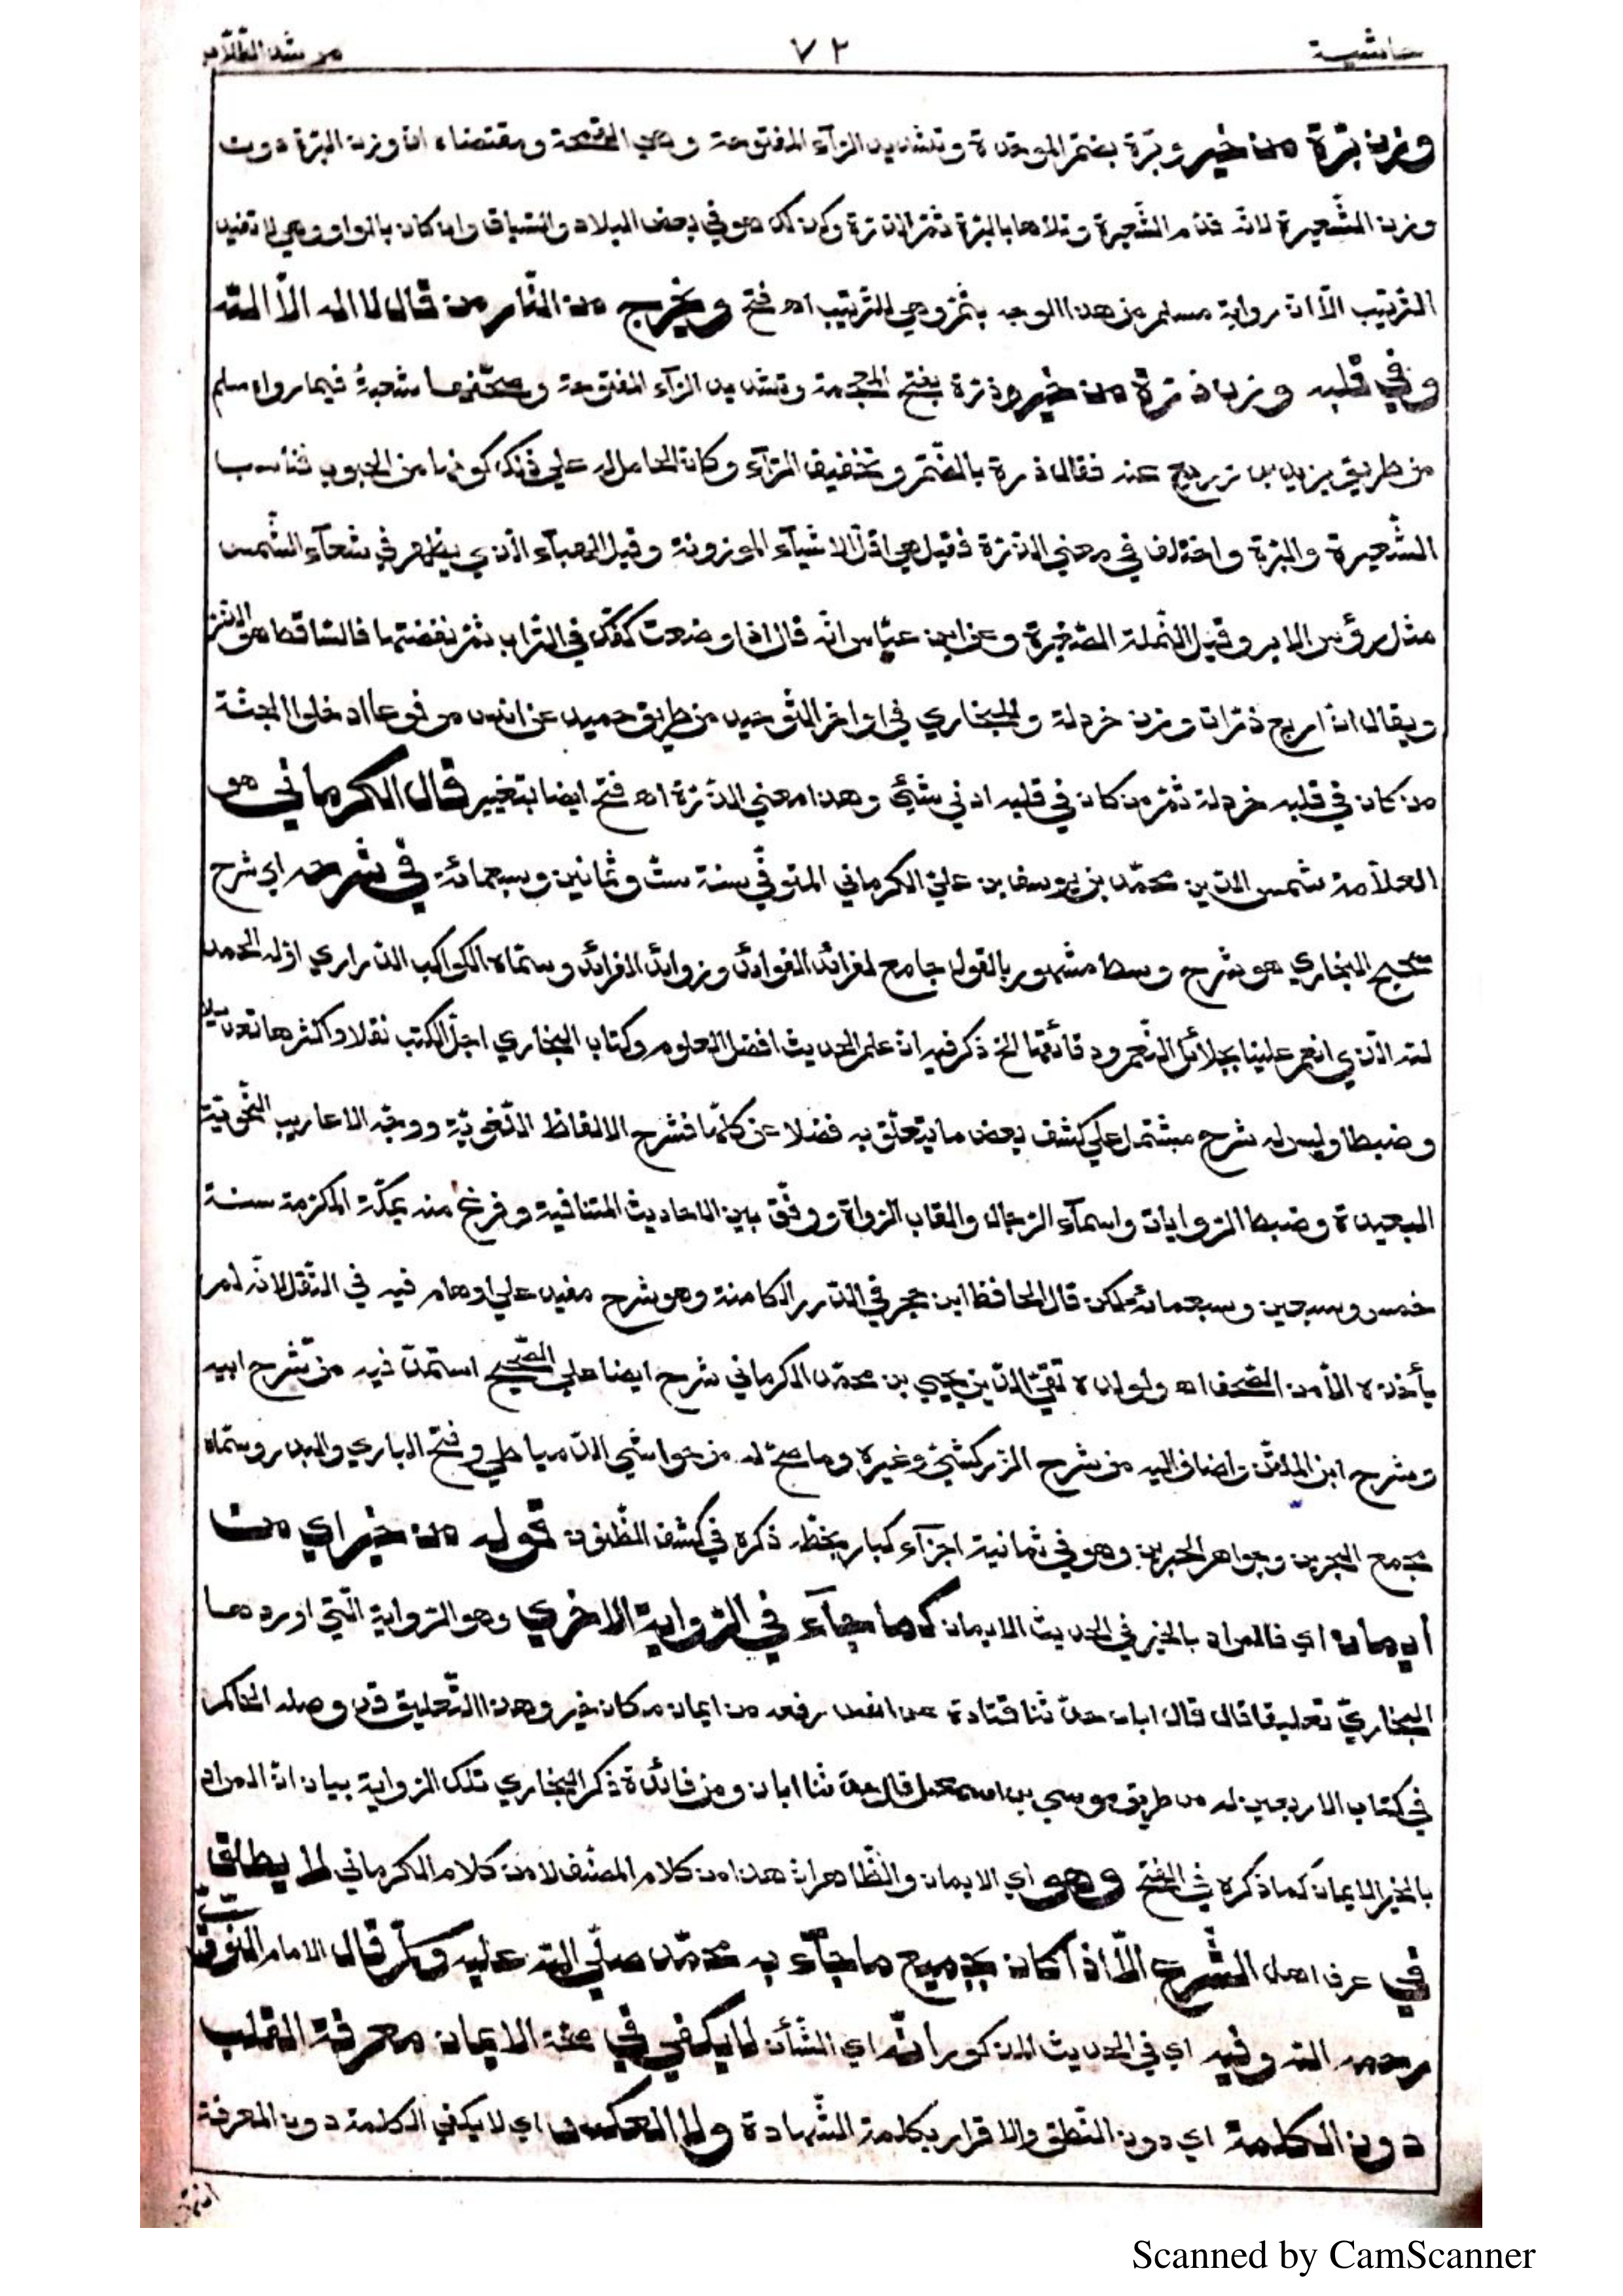 حاشية ٧٢ مرشد الطلاب
وزن برّة من خير وبرّة بضمّ الموحّدة وتشديد الرّآء المفتوحة وهي القمحة ومقتضاه انّ وزن البرّة دون
وزن الشّعيرة لانّه قدّم الشّعيرة وتلاها بالبرّة ثمّ الذّرّة وكذلك هو في بعض البلاد والسّياق وان كان بالواو وهي لا تفيد
التّرتيب الّا انّ رواية مسلم من هذا الوجه بثمّ وهي للتّرتيب اهـ فتح ويخرج من النّار من قال لا اله الّا اللّه
وفي قلبه وزن ذرّة من خير وذرّة بفتح المعجمة وتشديد الرّآء المفتوحة وصحّفها شعبة فيما رواه مسلم
من طريق يزيد بن زريع عنه فقال ذرة بالضّمّ وتخفيف الرّآء وكانّ الحامل له علي ذلك كونها من الحبوب فناسب
الشّعيرة والبرّة واختلف في معني الذّرّة فقيل هي اقلّ الاشيآء الموزونة وقيل الهبآء الّذي يظهر في شعآء الشّمس
مثل رؤس الابر وقيل النّملة الصّغيرة وعن ابن عبّاس انّه قال اذا وضعت كفّك في التّراب ثمّ نفضتها فالسّاقط هو الذّرّ
ويقال انّ اربع ذرّات وزن خردلة وللبخاري في اواخر التّوحيد من طريق حميد عن انس مرفوعا ادخلوا الجنّة
من كان في قلبه خردلة ثمّ من كان في قلبه ادني شيئ وهذا معني الذّرّة اهـ فتح ايضا بتغيير قال الكرماني هو
العلّامة شمس الدّين محمّد بن يوسف بن علي الكرماني المتوفّي سنة ستّ وثمانين وسبعمائة في شرحه اي شرح
صحيح البخاري هو شرح وسط مشهور بالقول جامع لفرائد الفوائد وزوائد الفرائد وسمّاه الكواكب الدّراري اوّله الحمد
للّه الّذي انعم علينا بجلائل النّعم ودقائقها الخ ذكر فيه انّ علم الحديث افضل العلوم وكتاب البخاري اجلّ الكتب نقلا واكثرها تعديلا
وضبطا وليس له شرح مشتمل علي كشف بعض ما يتعلّق به فضلا عن كلّها فشرح الالفاظ اللّغويّة ووجّه الاعاريب النّحويّة
البعيدة وضبط الرّوايات واسمآء الرّجال والقاب الرّواة ووفّق بين الاحاديث المتنافية وفرغ منه بمكّة المكرّمة سنة
خمس وسبعين وسبعمائة لكن قال الحافظ ابن حجر في الدّرر الكامنة وهو شرح مفيد علي اوهام فيه في النّقل لانّه لم
يأخذه الّا من الصّحف اهـ ولولده تقيّ الدّين يحيي بن محمّد الكرماني شرح ايضا علي الصّحيح استمدّ فيه من شرح ابيه
وشرح ابن الملقّن واضاف اليه من شرح الزّركشيّ وغيره وما سنح له من حواشي الدّمياطي وفتح الباري والبدر وسمّاه
مجمع البحرين وجواهر الحبرين وهو في ثمانية اجزآء كبار بخطّه ذكره في كشف الظّنون قوله من خير اي من
ايمان اي فالمراد بالخير في الحديث الايمان كما جآء في الرّواية الاخري وهو الرّواية الّتي اوردها
البخاريّ تعليقا قال قال ابان حدّثنا قتادة عن انس رفعه من ايمان مكان خير وهذا التّعليق قد وصله الحاكم
في كتاب الاربعين له من طريق موسي بن اسمعيل قال حدّثنا ابان ومن فائدة ذكر البخاري تلك الرّواية بيان انّ المراد
بالخير الايمان كما ذكره في الفتح وهو اي الايمان والظّاهر انّ هذا من كلام المصنّف لا من كلام الكرماني لا يطلق
في عرف اهل الشّرع الّا اذا كان بجميع ما جآء به محمّد صلّي اللّه عليه وسلّم قال الامام النّوويّ
رحمه اللّه وفيه اي في الحديث المذكور انّه اي الشّأن لا يكفي في صحّة الايمان معرفة القلب
دون الكلمة اي دون النّطق والاقرار بكلمة الشّهادة ولا العكس اي لا يكفي الكلمة دون المعرفة
Scanned by CamScanner